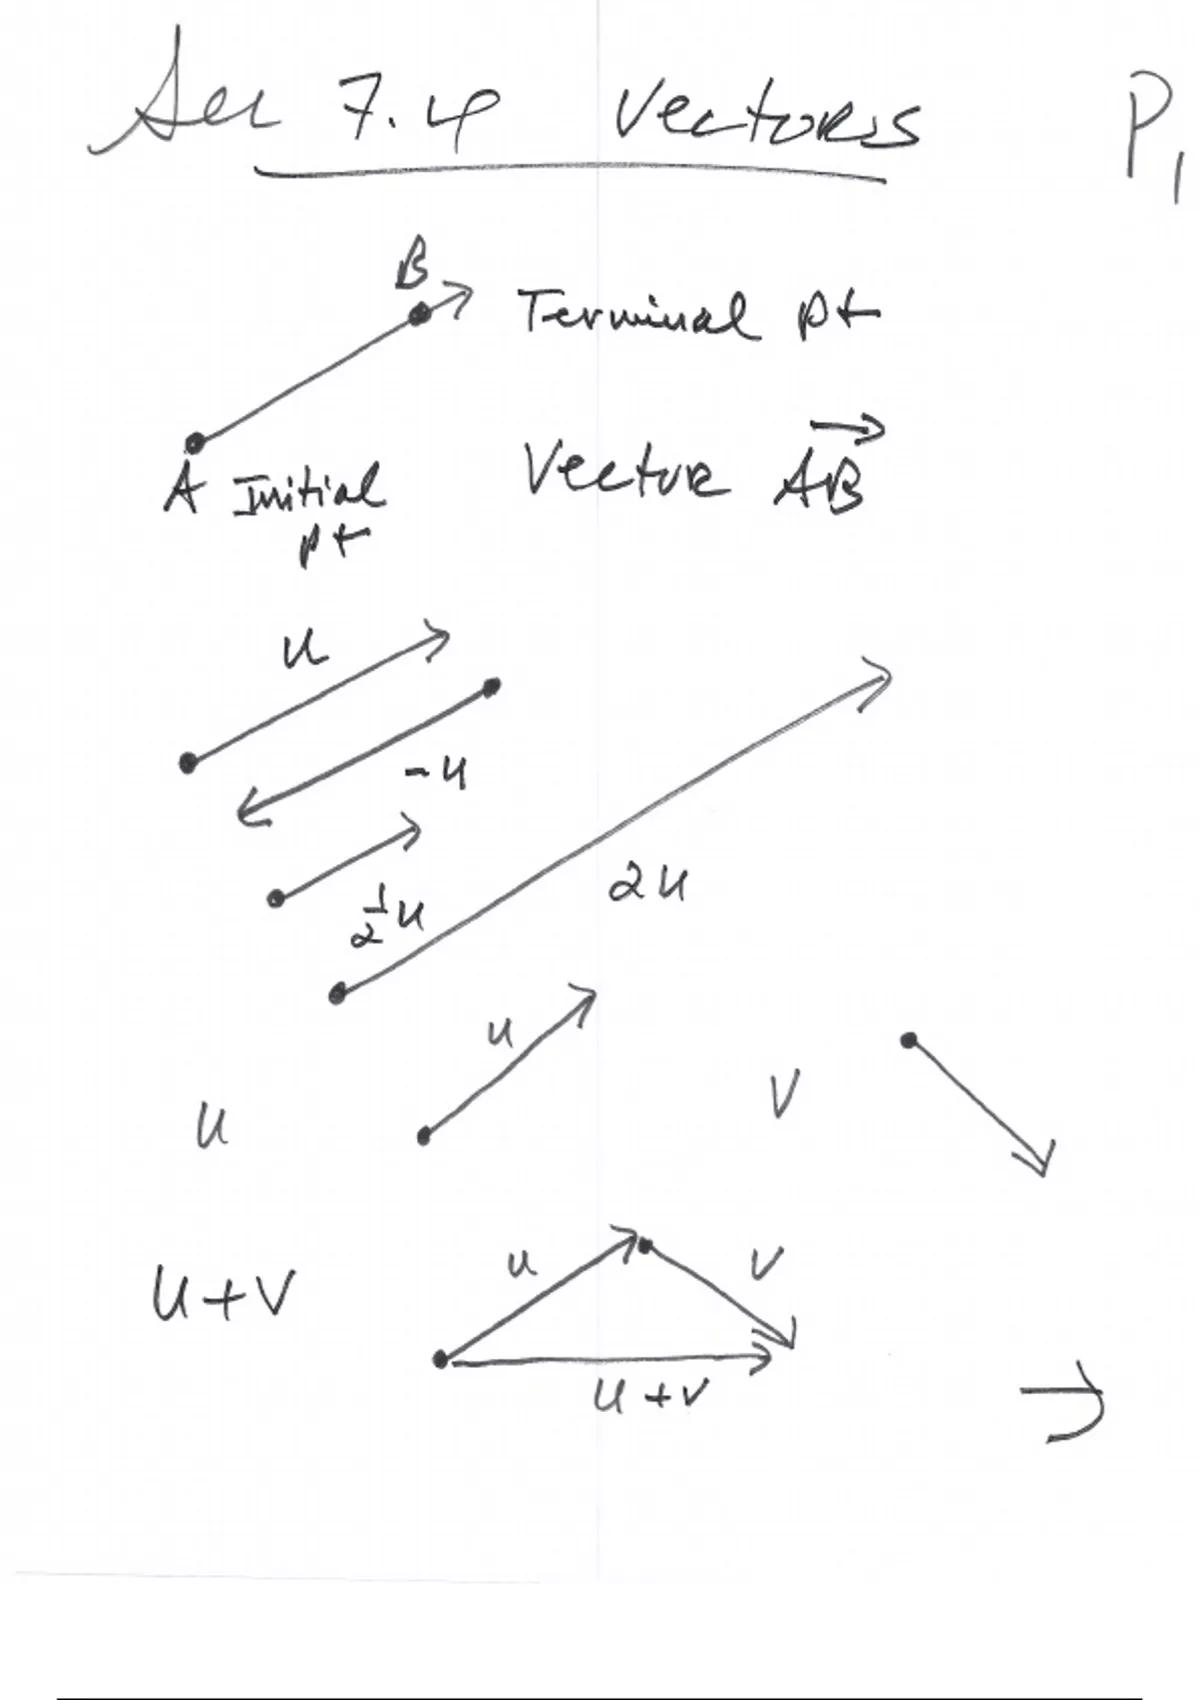 Sec 7.4 Vectors P1
B
Terminal pt
A Initial pt
Vector AB
u
-u
1/2 u
2u
u
u
V
u
V
u+v
u+v